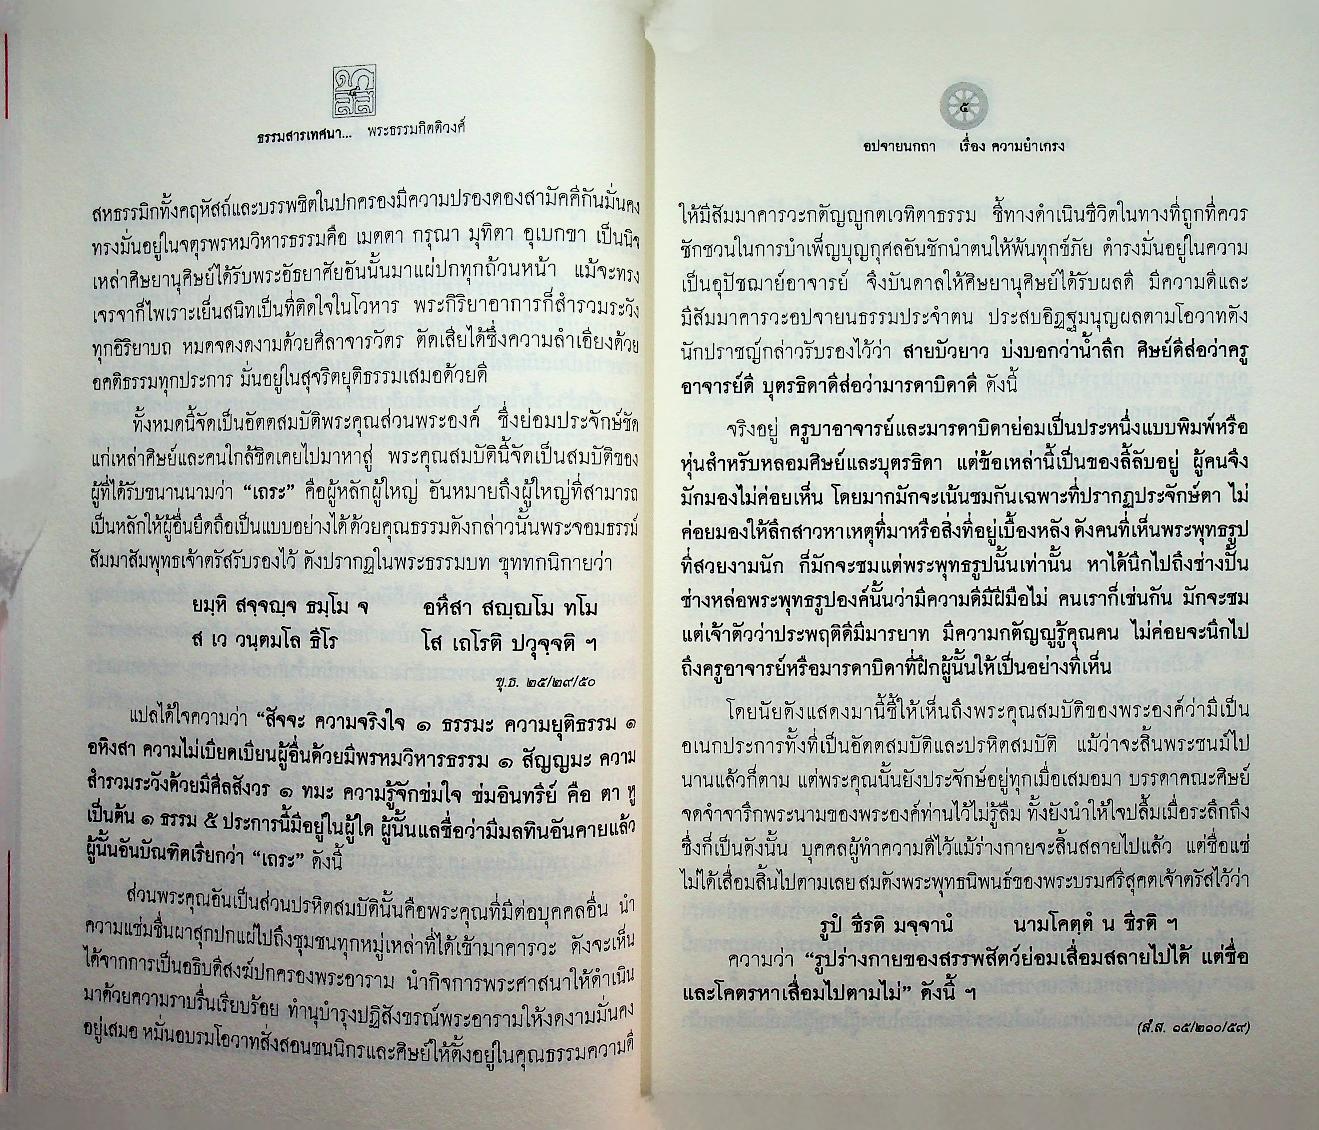 ๔
ธรรมสารเทศนา... พระธรรมกิตติวงศ์
สหธรรมิกทั้งคฤหัสถ์และบรรพชิตในปกครองมีความปรองดองสามัคคีกันมั่นคง
ทรงมั่นอยู่ในจตุรพรหมวิหารธรรมคือ เมตตา กรุณา มุทิตา อุเบกขา เป็นนิจ
เหล่าศิษยานุศิษย์ได้รับพระอัธยาศัยอันนั้นมาแผ่ปกทุกถ้วนหน้า แม้จะทรง
เจรจาก็ไพเราะเย็นสนิทเป็นที่ติดใจในโวหาร พระกิริยาอาการก็สำรวมระวัง
ทุกอิริยาบถ หมดจดงดงามด้วยศีลาจารวัตร ตัดเสียได้ซึ่งความลำเอียงด้วย
อคติธรรมทุกประการ มั่นอยู่ในสุจริตยุติธรรมเสมอด้วยดี
ทั้งหมดนี้จัดเป็นอัตตสมบัติพระคุณส่วนพระองค์ ซึ่งย่อมประจักษ์ชัด
แก่เหล่าศิษย์และคนใกล้ชิดเคยไปมาหาสู่ พระคุณสมบัตินี้จัดเป็นสมบัติของ
ผู้ที่ได้รับขนานนามว่า “เถระ” คือผู้หลักผู้ใหญ่ อันหมายถึงผู้ใหญ่ที่สามารถ
เป็นหลักให้ผู้อื่นยึดถือเป็นแบบอย่างได้ด้วยคุณธรรมดังกล่าวนั้นพระจอมธรรม์
สัมมาสัมพุทธเจ้าตรัสรับรองไว้ ดังปรากฏในพระธรรมบท ขุททกนิกายว่า
ยมฺหิ สจฺจญฺจ ธมฺโม จ อหึสา สญฺญโม ทโม
ส เว วนฺตมโล ธีโร โส เถโรติ ปวุจฺจติ ฯ
ขุ.ธ. ๒๕/๒๙/๕๐
แปลได้ใจความว่า “สัจจะ ความจริงใจ ๑ ธรรมะ ความยุติธรรม ๑
อหิงสา ความไม่เบียดเบียนผู้อื่นด้วยมีพรหมวิหารธรรม ๑ สัญญมะ ความ
สำรวมระวังด้วยมีศีลสังวร ๑ ทมะ ความรู้จักข่มใจ ข่มอินทรีย์ คือ ตา หู
เป็นต้น ๑ ธรรม ๕ ประการนี้มีอยู่ในผู้ใด ผู้นั้นแลชื่อว่ามีมลทินอันคายแล้ว
ผู้นั้นอันบัณฑิตเรียกว่า “เถระ” ดังนี้
ส่วนพระคุณอันเป็นส่วนปรหิตสมบัตินั้นคือพระคุณที่มีต่อบุคคลอื่น นำ
ความแช่มชื่นผาสุกปกแผ่ไปถึงชุมชนทุกหมู่เหล่าที่ได้เข้ามาคารวะ ดังจะเห็น
ได้จากการเป็นอธิบดีสงฆ์ปกครองพระอาราม นำกิจการพระศาสนาให้ดำเนิน
มาด้วยความราบรื่นเรียบร้อย ทำนุบำรุงปฏิสังขรณ์พระอารามให้งดงามมั่นคง
อยู่เสมอ หมั่นอบรมโอวาทสั่งสอนชนนิกรและศิษย์ให้ตั้งอยู่ในคุณธรรมความดี
๕
อปจายนกถา เรื่อง ความยำเกรง
ให้มีสัมมาคารวะกตัญญูกตเวทิตาธรรม ชี้ทางดำเนินชีวิตในทางที่ถูกที่ควร
ชักชวนในการบำเพ็ญบุญกุศลอันชักนำตนให้พ้นทุกข์ภัย ดำรงมั่นอยู่ในความ
เป็นอุปัชฌาย์อาจารย์ จึงบันดาลให้ศิษยานุศิษย์ได้รับผลดี มีความดีและ
มีสัมมาคารวะอปจายนธรรมประจำตน ประสบอิฏฐมนุญผลตามโอวาทดัง
นักปราชญ์กล่าวรับรองไว้ว่า สายบัวยาว บ่งบอกว่าน้ำลึก ศิษย์ดีส่อว่าครู
อาจารย์ดี บุตรธิดาดีส่อว่ามารดาบิดาดี ดังนี้
จริงอยู่ ครูบาอาจารย์และมารดาบิดาย่อมเป็นประหนึ่งแบบพิมพ์หรือ
หุ่นสำหรับหลอมศิษย์และบุตรธิดา แต่ข้อเหล่านี้เป็นของลี้ลับอยู่ ผู้คนจึง
มักมองไม่ค่อยเห็น โดยมากมักจะเน้นชมกันเฉพาะที่ปรากฏประจักษ์ตา ไม่
ค่อยมองให้ลึกสาวหาเหตุที่มาหรือสิ่งที่อยู่เบื้องหลัง ดังคนที่เห็นพระพุทธรูป
ที่สวยงามนัก ก็มักจะชมแต่พระพุทธรูปนั้นเท่านั้น หาได้นึกไปถึงช่างปั้น
ช่างหล่อพระพุทธรูปองค์นั้นว่ามีความดีมีฝีมือไม่ คนเราก็เช่นกัน มักจะชม
แต่เจ้าตัวว่าประพฤติดีมีมารยาท มีความกตัญญูรู้คุณคน ไม่ค่อยจะนึกไป
ถึงครูอาจารย์หรือมารดาบิดาที่ฝึกผู้นั้นให้เป็นอย่างที่เห็น
โดยนัยดังแสดงมานี้ชี้ให้เห็นถึงพระคุณสมบัติของพระองค์ว่ามีเป็น
อเนกประการทั้งที่เป็นอัตตสมบัติและปรหิตสมบัติ แม้ว่าจะสิ้นพระชนม์ไป
นานแล้วก็ตาม แต่พระคุณนั้นยังประจักษ์อยู่ทุกเมื่อเสมอมา บรรดาคณะศิษย์
จดจำจารึกพระนามของพระองค์ท่านไว้ไม่รู้ลืม ทั้งยังนำให้ใจปลื้มเมื่อระลึกถึง
ซึ่งก็เป็นดังนั้น บุคคลผู้ทำความดีไว้แม้ร่างกายจะสิ้นสลายไปแล้ว แต่ชื่อแซ่
ไม่ได้เสื่อมสิ้นไปตามเลย สมดังพระพุทธนิพนธ์ของพระบรมศรีสุคตเจ้าตรัสไว้ว่า
รูปํ ชีรติ มจฺจานํ นามโคตฺตํ น ชีรติ ฯ
ความว่า “รูปร่างกายของสรรพสัตว์ย่อมเสื่อมสลายไปได้ แต่ชื่อ
และโคตรหาเสื่อมไปตามไม่” ดังนี้ ฯ
(สํ.ส. ๑๕/๒๑๐/๕๙)